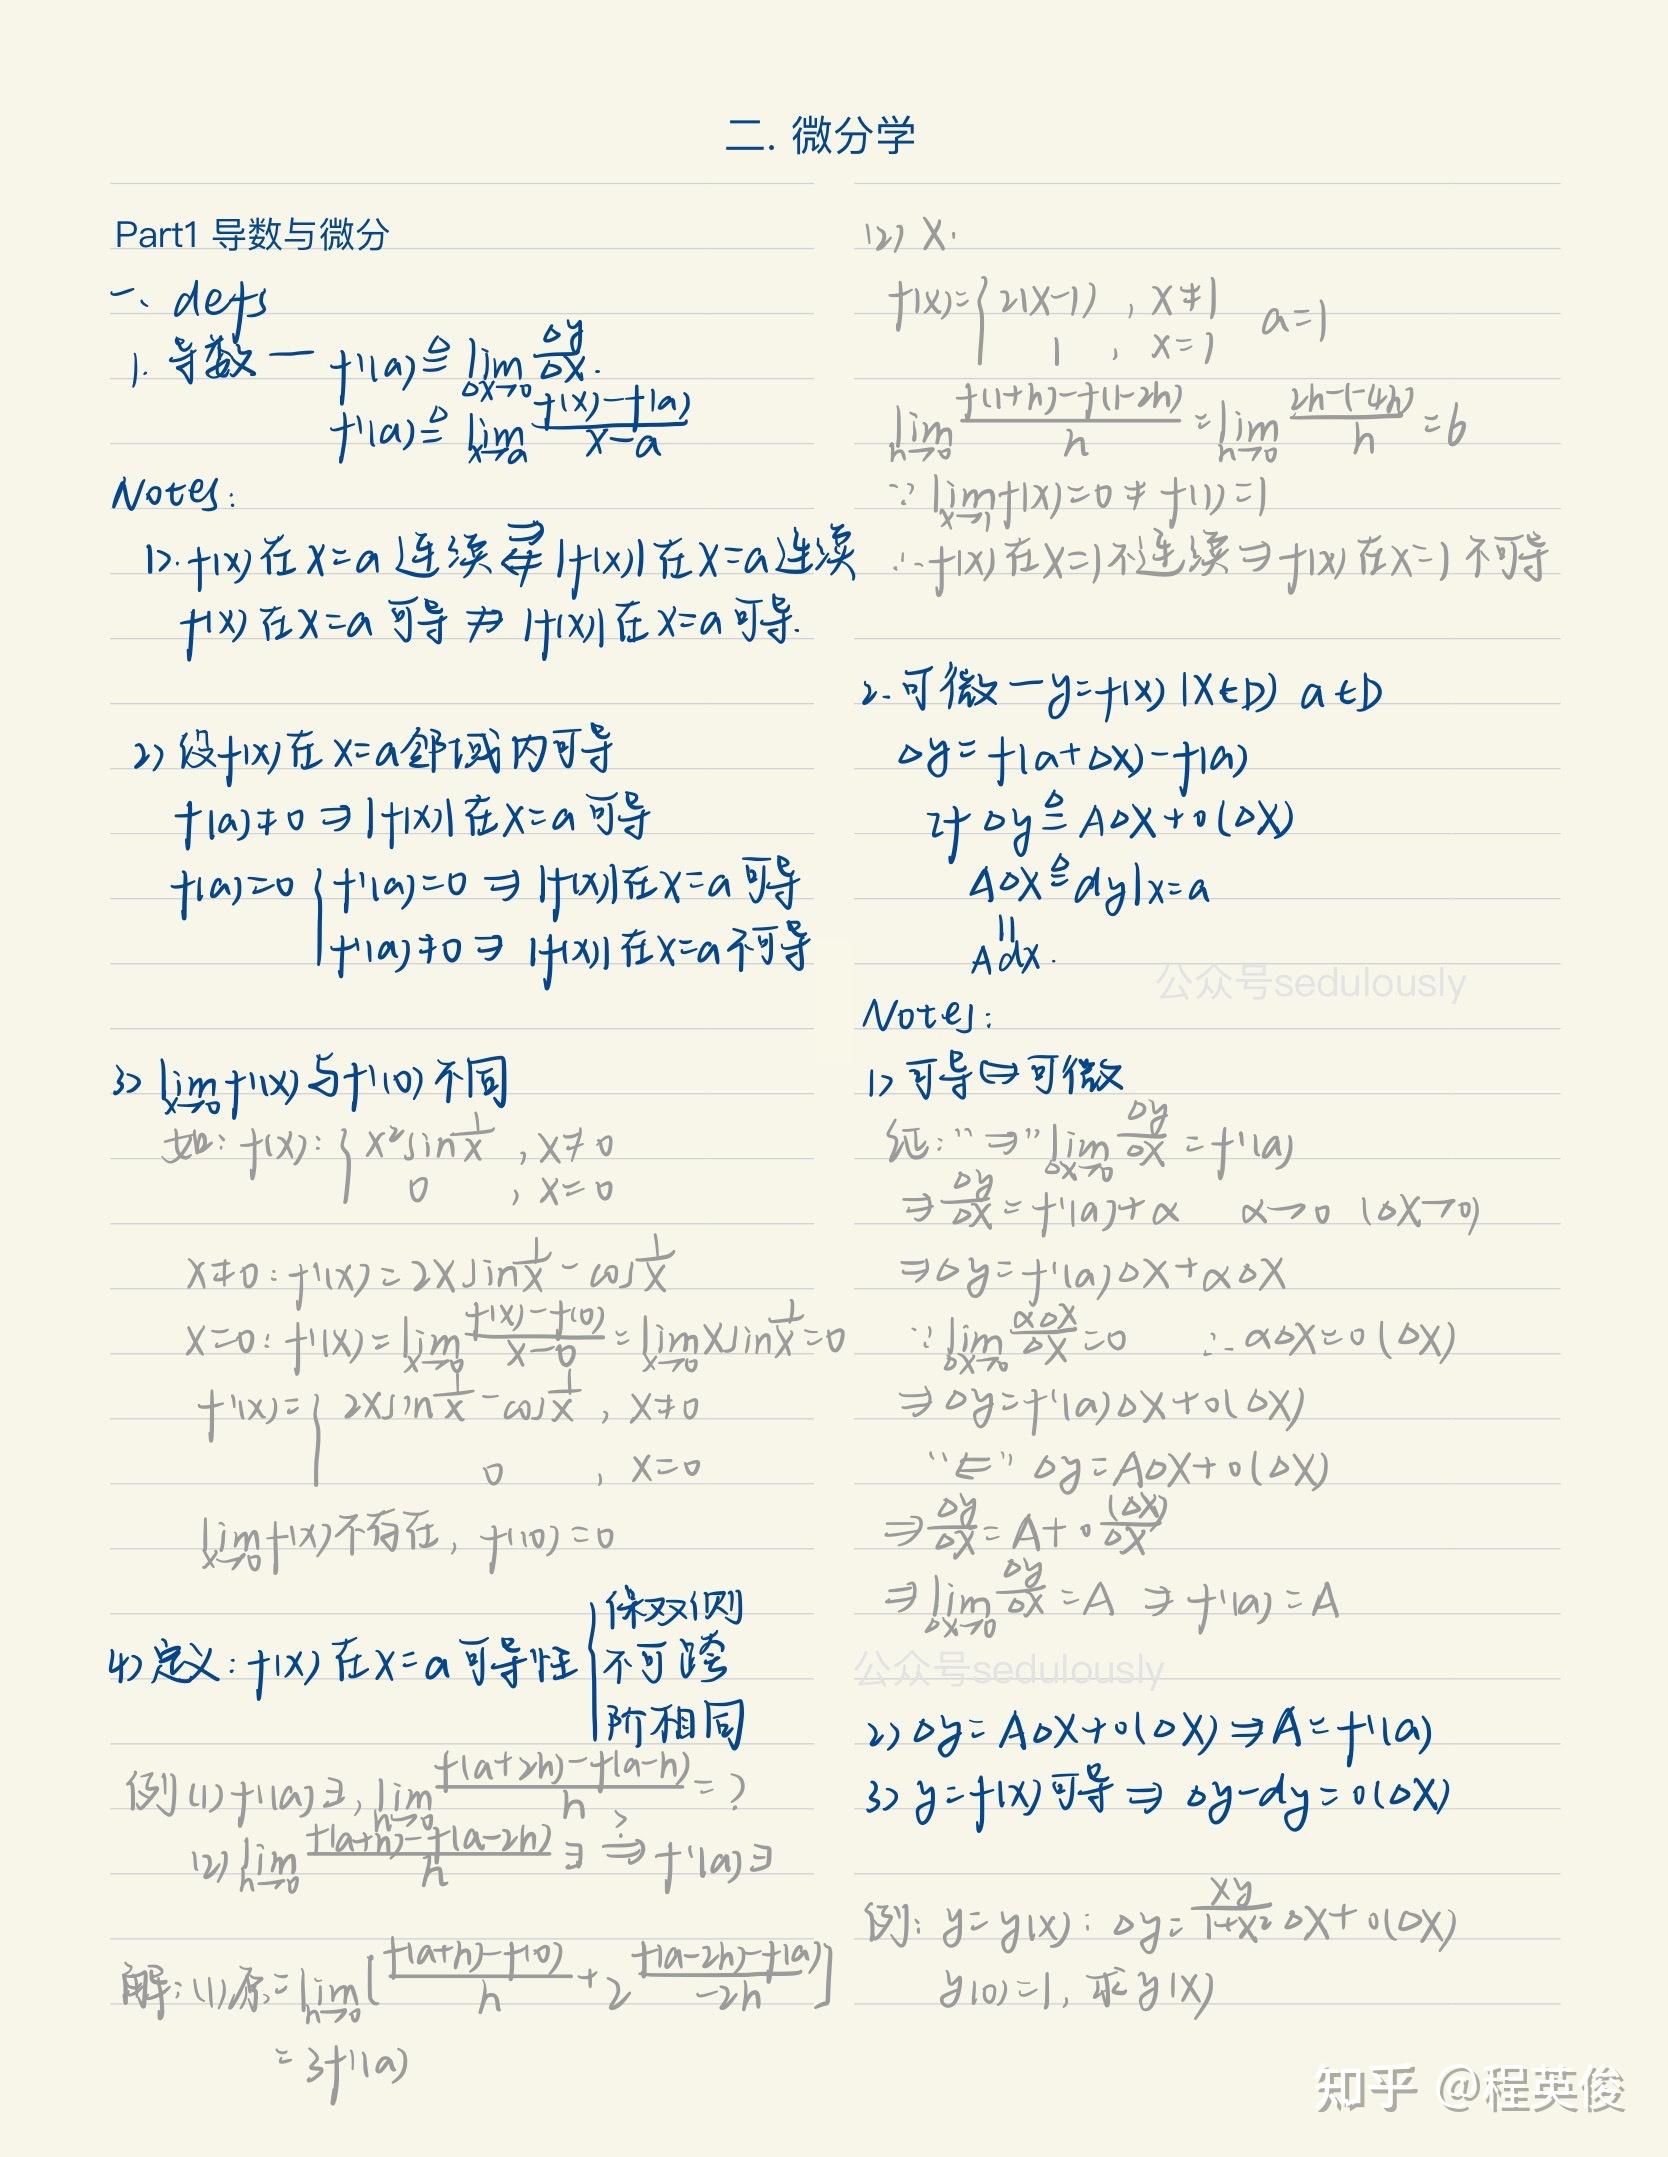 二. 微分学
Part1 导数与微分
一、defs
1. 导数 — f'(a) ≜ lim_{Δx→0} Δy/Δx.
f'(a) ≜ lim_{x→a} (f(x)-f(a))/(x-a)
Notes:
1). f(x) 在 x=a 连续 ⇄̸ |f(x)| 在 x=a 连续
f(x) 在 x=a 可导 ⇏ |f(x)| 在 x=a 可导.
2) 设 f(x) 在 x=a 邻域内可导
f(a)≠0 ⇒ |f(x)| 在 x=a 可导
f(a)=0 { f'(a)=0 ⇒ |f(x)| 在 x=a 可导
f'(a)≠0 ⇒ |f(x)| 在 x=a 不可导
3) lim_{x→0} f'(x) 与 f'(0) 不同
如: f(x): { x² sin 1/x , x≠0
0 , x=0
x≠0: f'(x) = 2x sin 1/x - cos 1/x
x=0: f'(x) = lim_{x→0} (f(x)-f(0))/(x-0) = lim_{x→0} x sin 1/x = 0
f'(x) = { 2x sin 1/x - cos 1/x , x≠0
0 , x=0
lim_{x→0} f'(x) 不存在, f'(0)=0
4) 定义: f(x) 在 x=a 可导性 { 保双侧
不可跨
阶相同
例 (1) f'(a)∃, lim_{h→0} (f(a+2h)-f(a-h))/h = ?
(2) lim_{h→0} (f(a+h)-f(a-2h))/h ∃ ⇒? f'(a)∃
解: (1) 原 = lim_{h→0} [ (f(a+h)-f(0))/h + 2 (f(a-2h)-f(a))/(-2h) ]
= 3f'(a)
(2) X.
f(x) = { 2(x-1) , x≠1
1 , x=1 a=1
lim_{h→0} (f(1+h)-f(1-2h))/h = lim_{h→0} (2h-(-4h))/h = 6
∵ lim_{x→1} f(x)=0 ≠ f(1)=1
∴ f(x) 在 x=1 不连续 ⇒ f(x) 在 x=1 不可导
2. 可微 — y=f(x) (x∈D) a∈D
Δy = f(a+Δx)-f(a)
if Δy ≜ AΔx+o(Δx)
AΔx ≜ dy|x=a
||
Adx.
公众号sedulously
Notes:
1) 可导 ⇔ 可微
证: "⇒" lim_{Δx→0} Δy/Δx = f'(a)
⇒ Δy/Δx = f'(a)+α α→0 (Δx→0)
⇒ Δy = f'(a)Δx+αΔx
∵ lim_{Δx→0} αΔx/Δx = 0 ∴ αΔx=o(Δx)
⇒ Δy = f'(a)Δx+o(Δx)
"⇐" Δy = AΔx+o(Δx)
⇒ Δy/Δx = A + o (Δx)/Δx
⇒ lim_{Δx→0} Δy/Δx = A ⇒ f'(a) = A
公众号sedulously
2) Δy = AΔx+o(Δx) ⇒ A = f'(a)
3) y=f(x) 可导 ⇒ Δy-dy = o(Δx)
例: y=y(x): Δy = xy/(1+x²) Δx+o(Δx)
y(0)=1, 求 y(x)
知乎 @程英俊